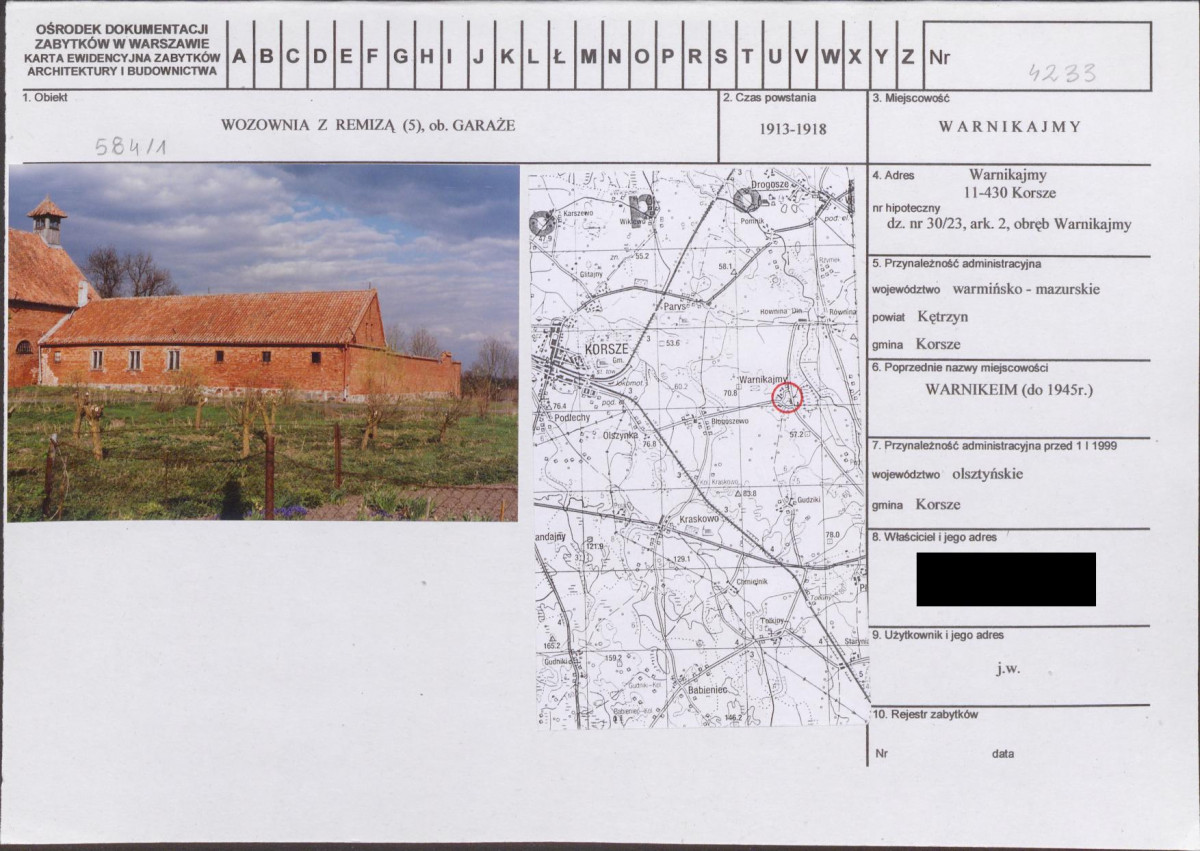 OŚRODEK DOKUMENTACJI
ZABYTKÓW W WARSZAWIE
KARTA EWIDENCYJNA ZABYTKÓW
ARCHITEKTURY I BUDOWNICTWA
A B C D E F G H I J K L Ł M N O P R S T U V W X Y Z
Nr
4233
1. Obiekt
WOZOWNIA Z REMIZĄ (5), ob. GARAŻE
584/1
2. Czas powstania
1913-1918
3. Miejscowość
WARNIKAJMY
4. Adres
Warnikajmy
11-430 Korsze
nr hipoteczny
dz. nr 30/23, ark. 2, obręb Warnikajmy
5. Przynależność administracyjna
województwo warmińsko - mazurskie
powiat Kętrzyn
gmina Korsze
6. Poprzednie nazwy miejscowości
WARNIKEIM (do 1945r.)
7. Przynależność administracyjna przed 1 I 1999
województwo olsztyńskie
gmina Korsze
8. Właściciel i jego adres
9. Użytkownik i jego adres
j.w.
10. Rejestr zabytków
Nr
data
3
Drogosze
Karszewo
Pomnik
pod. el.
47.9
zn.
55.2
58.1
Glitajny
Parys
Równina
KORSZE
Gm.
53.6
3
60.2
Warnikajmy
70.8
pod. el.
76.4
Podlechy
Olszynka
76.8
Błogoszewo
57.2
Kol. Kraskowo
83.8
Gudziki
Kraskowo
andajny
121.9
129.1
78.0
4
Chmielnik
Tołkiny
165.2
Gudniki
159.2
Gudniki-Kol.
Babieniec
Babieniec-Kol.
146.2